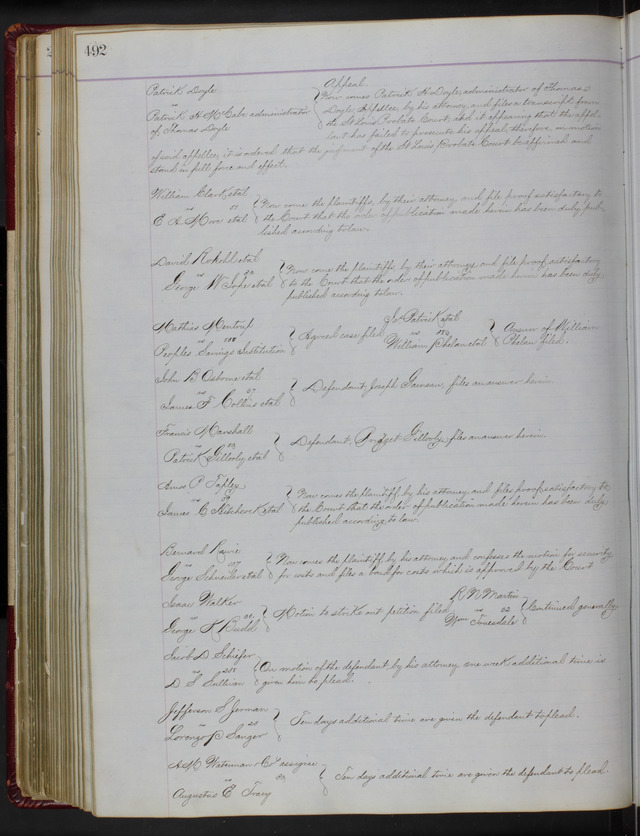 492
Patrick Doyle
vs
Patrick H McCabe administrator
of Thomas Doyle
Appeal.
Now comes Patrick H Doyle, administrator of Thomas
Doyle, Appellee, by his attorney and files a transcript from
the St Louis Probate Court, and it appearing that the appel-
lant has failed to prosecute his appeal, therefore, on motion
of said appellee, it is ordered that the judgment of the St Louis Probate Court be affirmed and
stand in full force and effect.
William Clark et al
vs
E A et al
Now come the plaintiffs, by their attorney, and file proof satisfactory to
the Court that the order of publication made herein has been duly pub-
lished according to law.
David et al
vs
George W et al
Now come the plaintiffs, by their attorney and file proof satisfactory
to the Court that the order of publication made herein has been duly
published according to law.
Mathias Mentrup
vs
Peoples Savings Institution
Agreed case filed
Patrick et al
vs
William Phelan et al
Answer of William
Phelan filed.
John B Osborne et al
vs
James F Collins et al
Defendant, Joseph files an answer herein.
Francis Marshall
vs
Patrick Gillooly et al
Defendant, Bridget Gillooly, files an answer herein.
Amos P Tapley
vs
James C Hitchcock et al
Now comes the plaintiff, by his attorney, and files proof satisfactory to
the Court that the order of publication made herein has been duly
published according to law.
Bernard
vs
George Schneider et al
Now comes the plaintiff by his attorney and confesses the motion for security
for costs and files a bond for costs which is approved by the Court
Isaac Walker
vs
George K Budd
Motion to strike out petition filed
R W Martin
vs 62
Wm Truesdale
Continued generally
Jacob D Schiefer
vs
D S Sullivan
On motion of the defendant by his attorney one week additional time is
given him to plead.
Jefferson S Jerman
vs
Lorenzo P Sanger
Ten days additional time are given the defendant to plead.
A M Waterman & Co assignee
vs
Augustus E Tracy
Ten days additional time are given the defendant to plead.